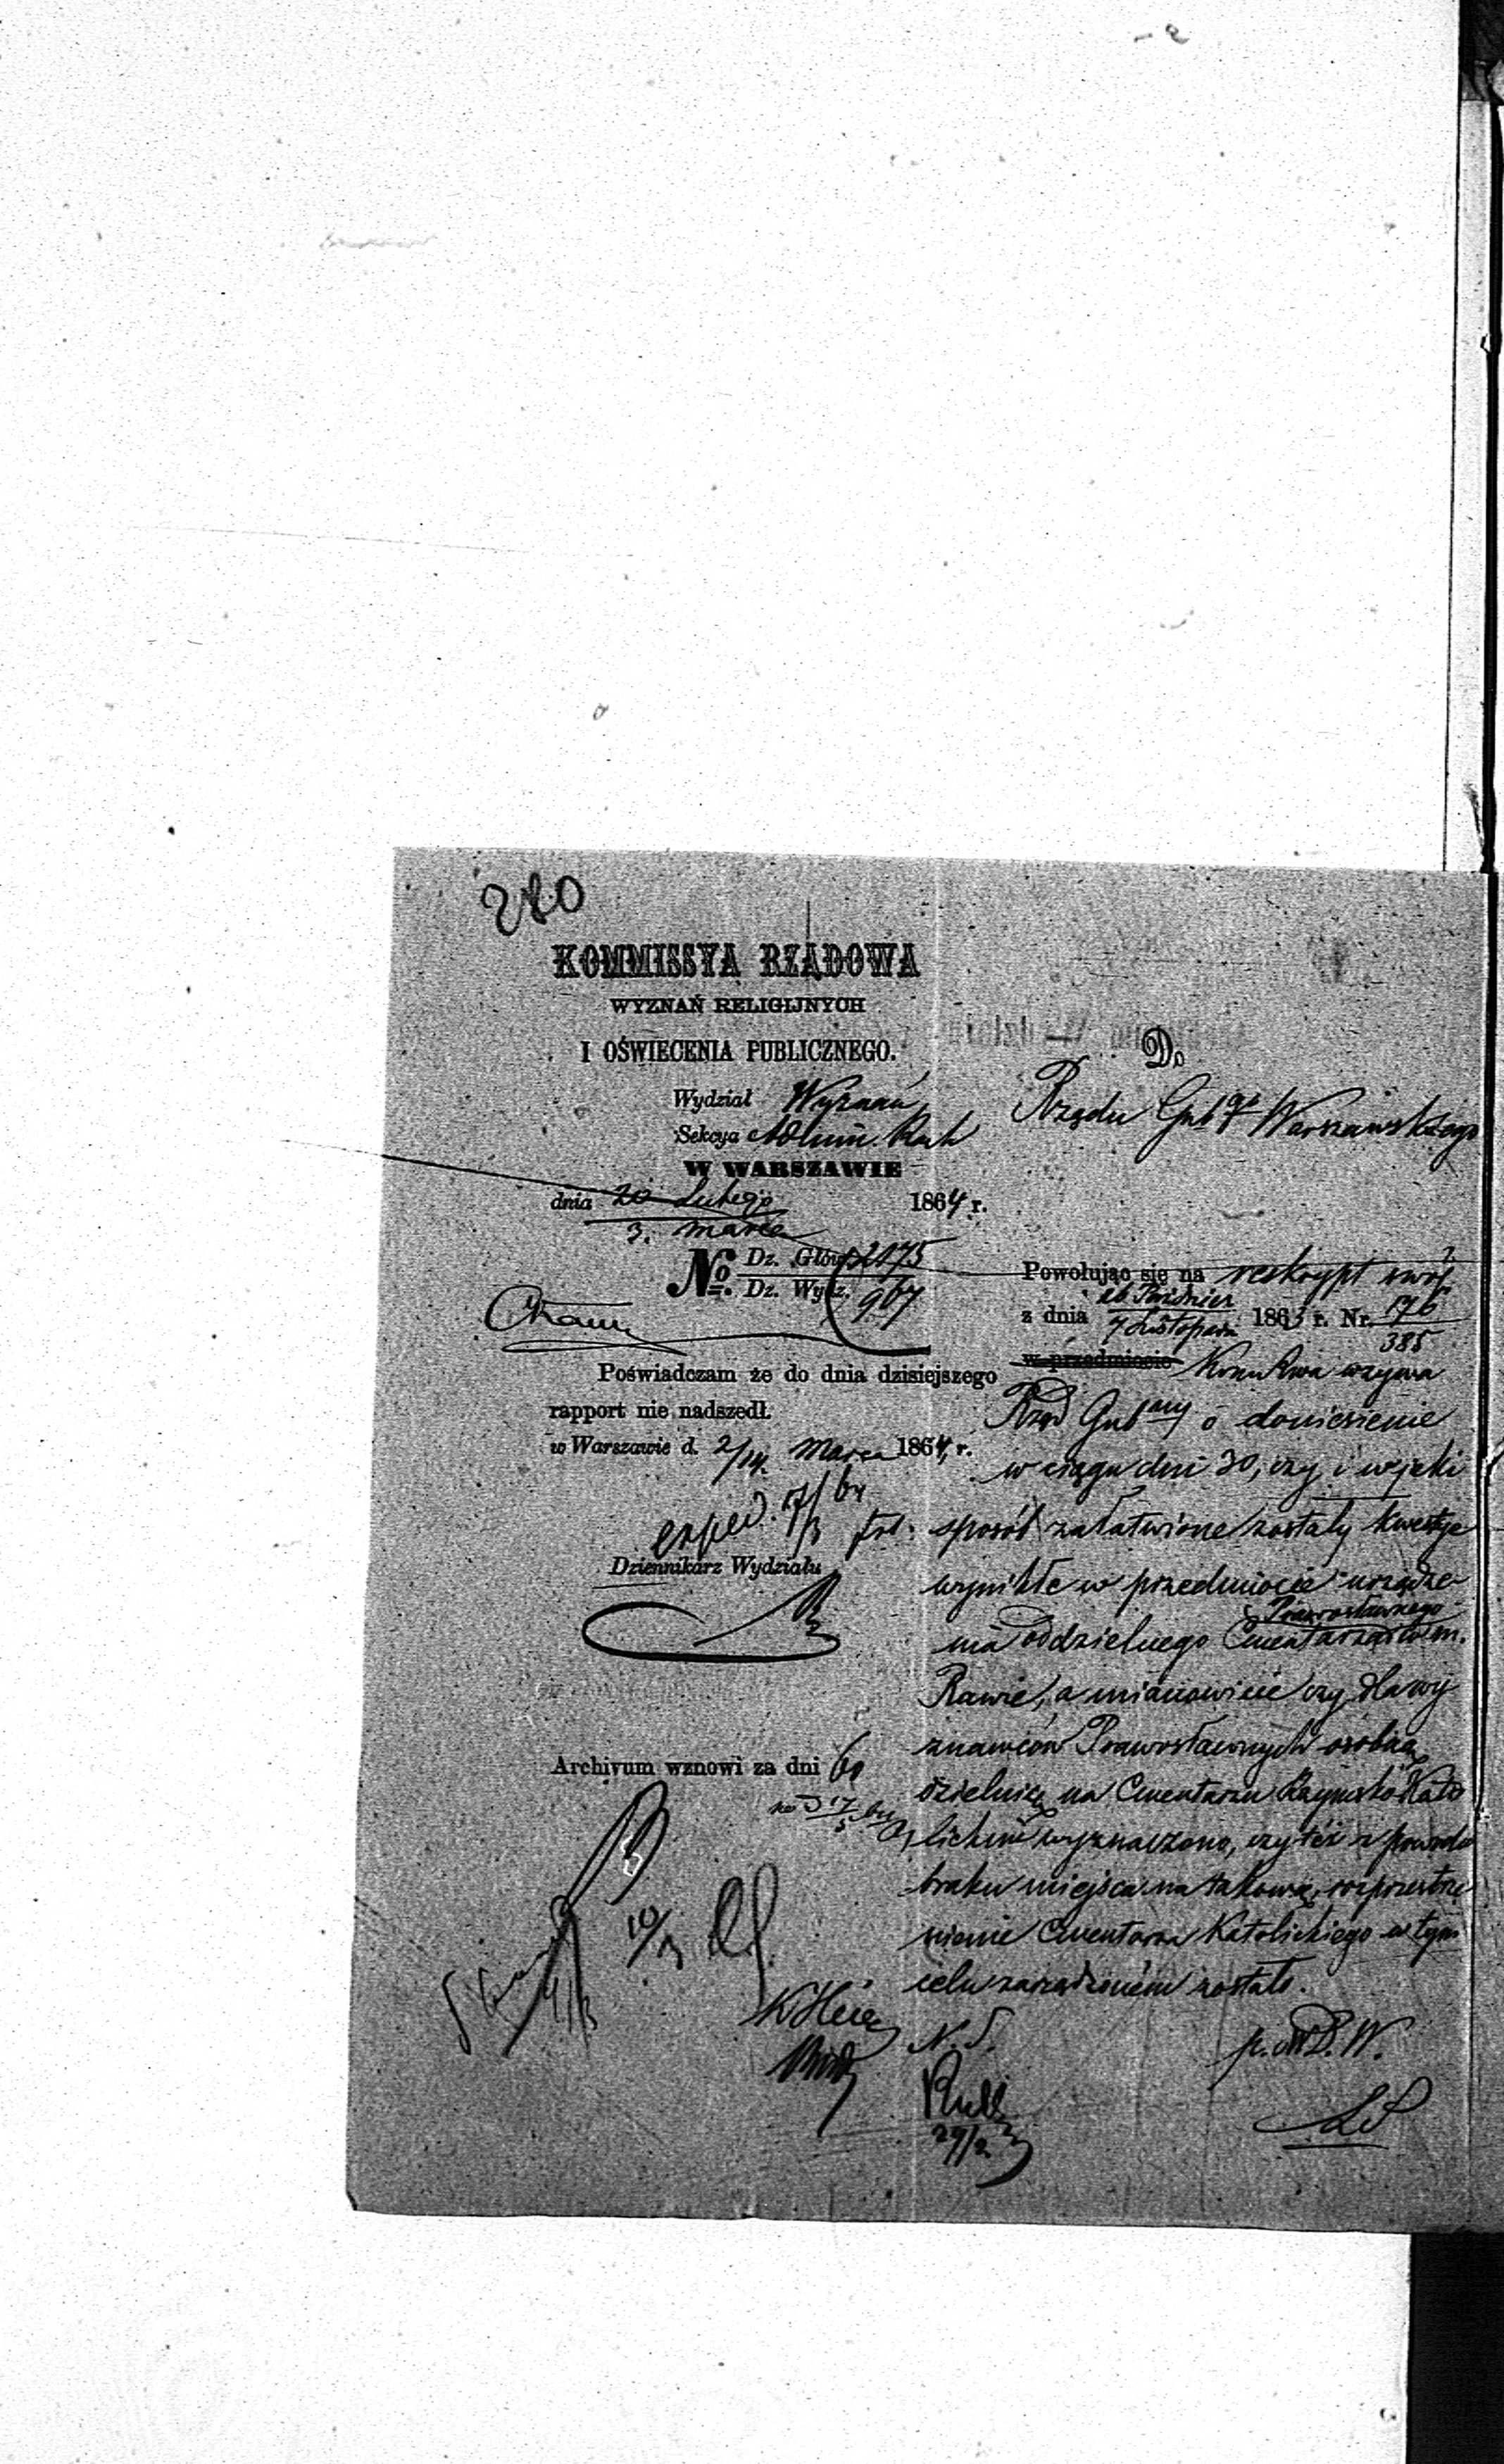 280
KOMMISSYA RZĄDOWA
WYZNAŃ RELIGIJNYCH
I OŚWIECENIA PUBLICZNEGO.
Wydział Wyznań
Sekcya Admin. Rach
W WARSZAWIE
dnia 20 Lutego 1864 r.
3. Marca
No. Dz. Głów. 2175
Dz. Wydz. 967
Poświadczam że do dnia dzisiejszego
rapport nie nadszedł.
w Warszawie d. 2/14. Marca 1864, r.
exped. 17/3 64
Dziennikarz Wydziału
Archivum wznowi za dni 60
10/3
4/3
Do
Rządu Gubgo Warszawskiego
Powołując się na reskrypt swój
z dnia 26 Paździer 1863 r. Nr. 176
7 Listopada 385
w przedmiocie Kom Rwa wzywa
Rząd Gubny o doniesienie
w ciągu dni 30, czy i w jaki
sposób załatwione zostały kwestye
wynikłe w przedmiocie urządze-
Prawosławnego
nia oddzielnego Cmentarza w m.
Rawie, a mianowicie czy dla wy
znawców Prawosławnych osobną
dzielnicę na Cmentarzu Rzymsko Kato
lickim wyznaczono, czy też z powodu
braku miejsca na takową, rozprzestrze
nienie Cmentarza Katolickiego w tym
celu zarządzonem zostało.
N. S.
p. o D. W.
29/2